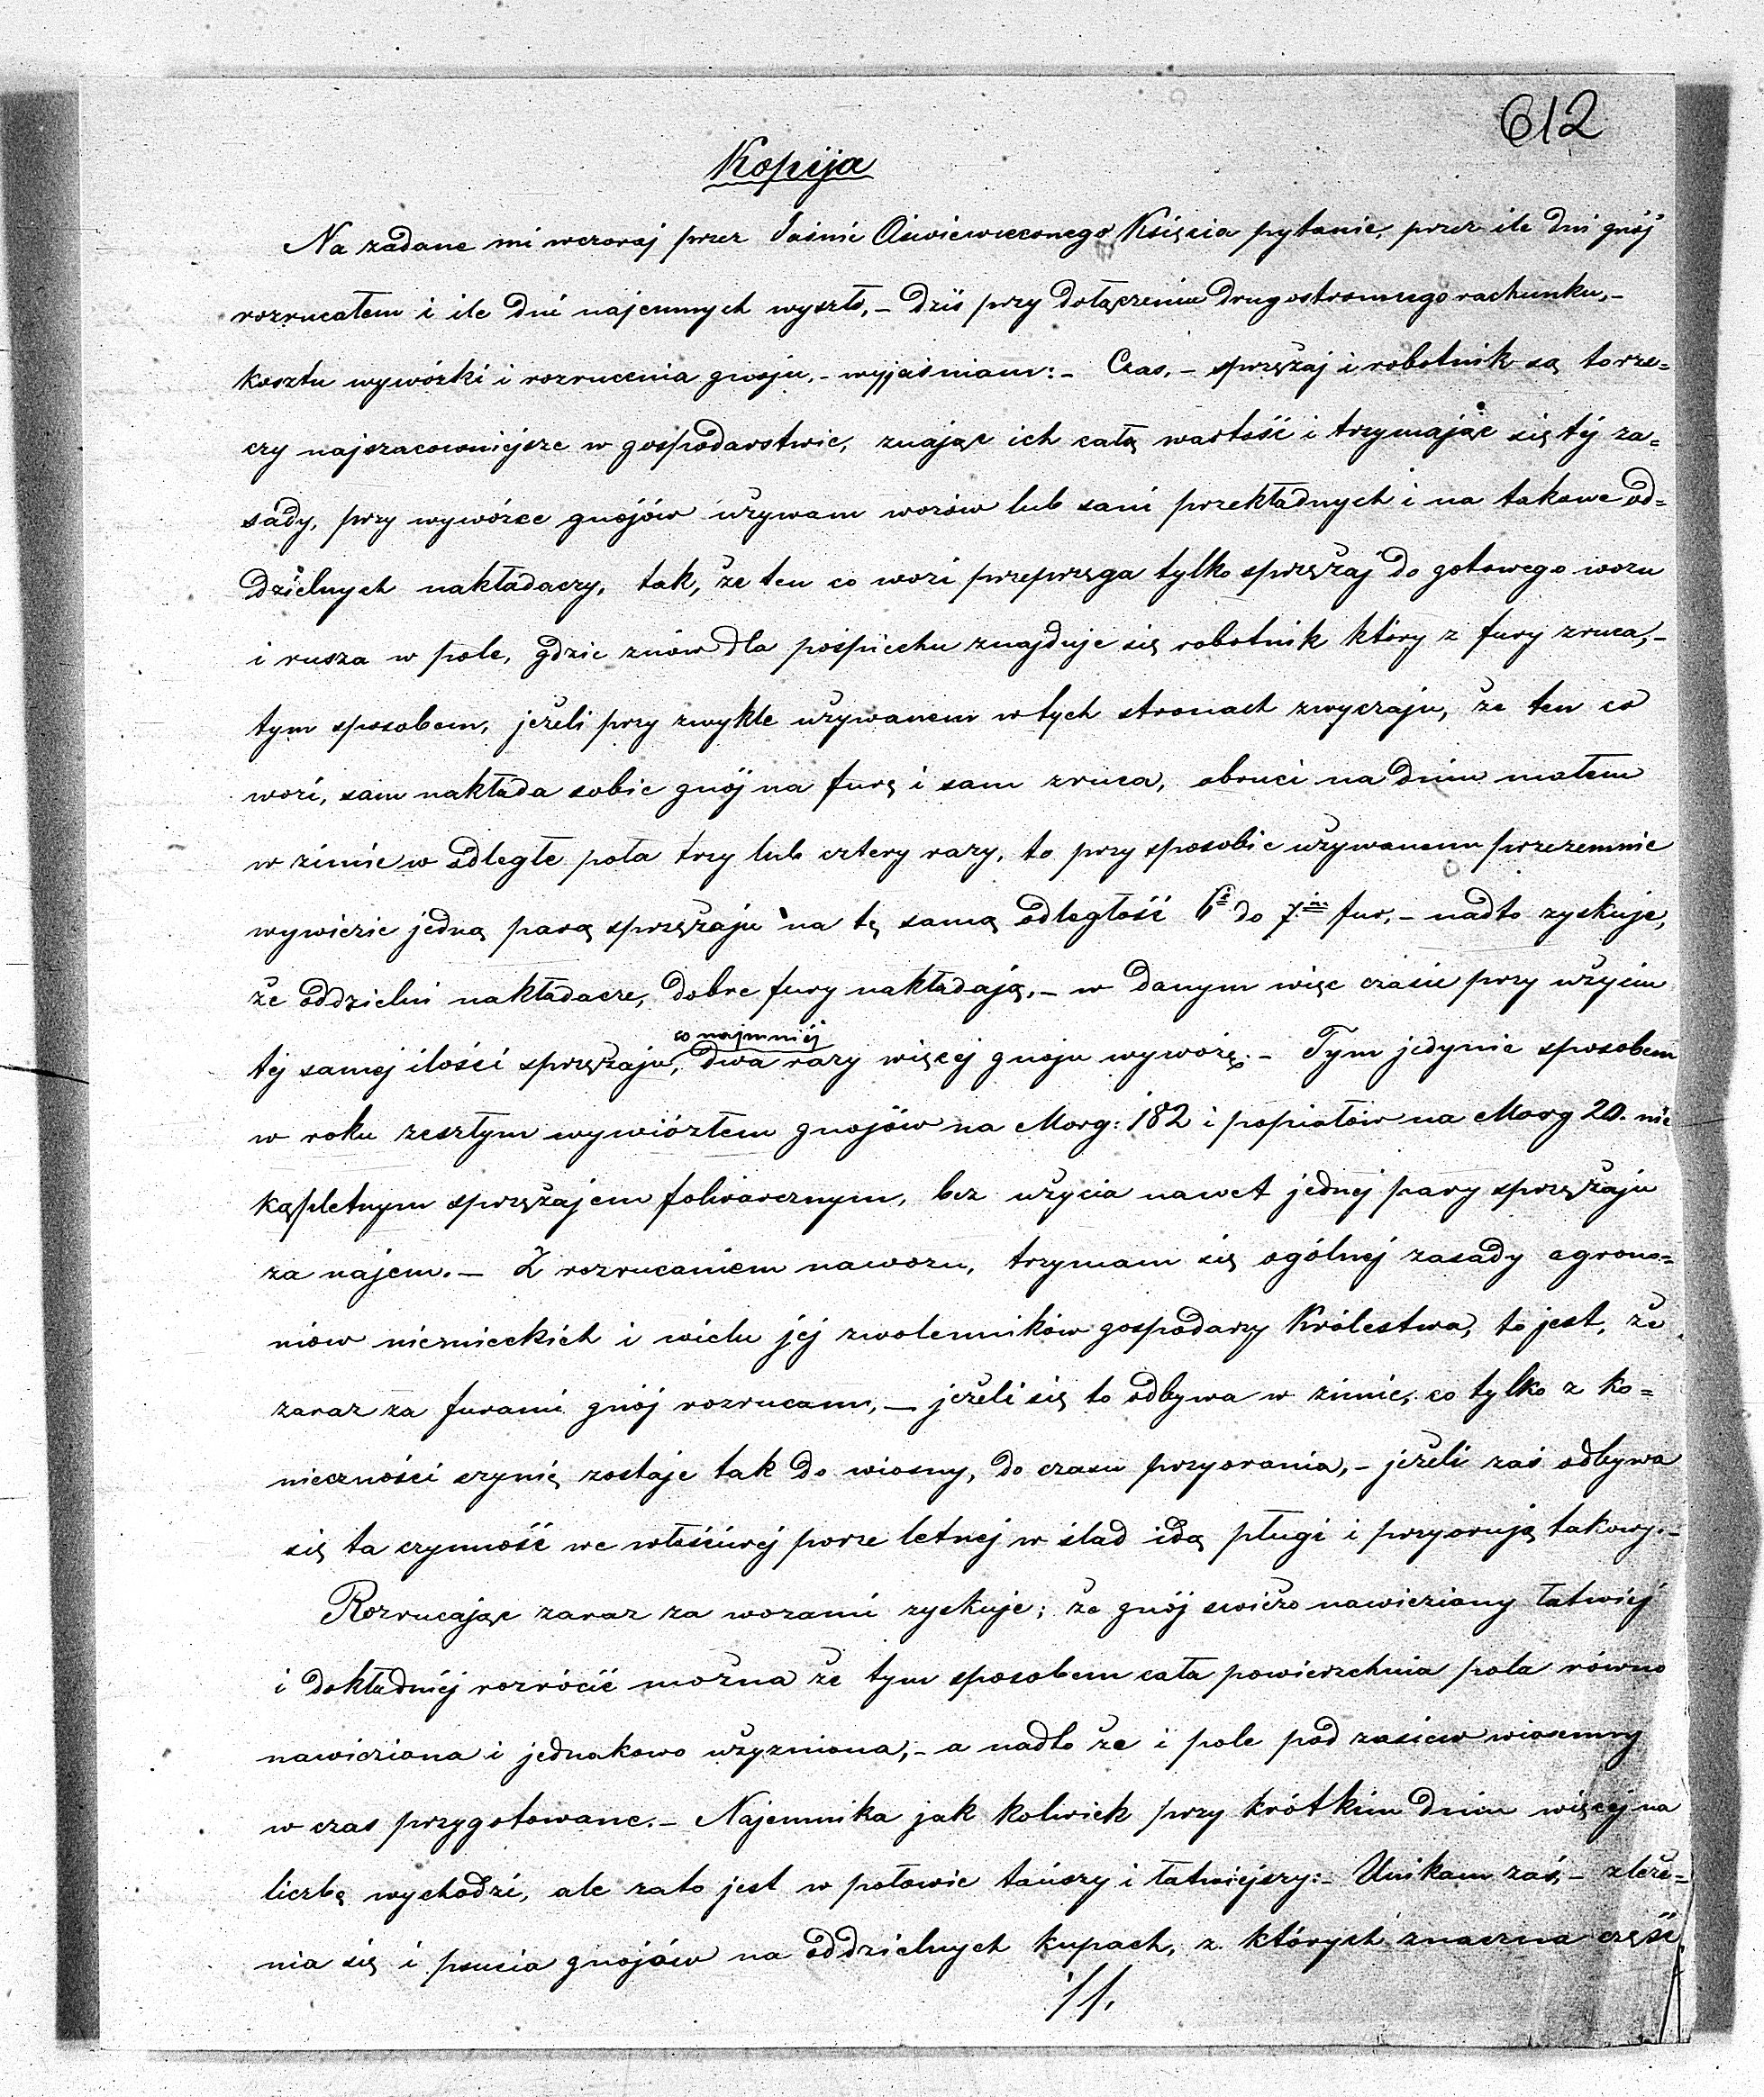 612
Kopija
Na zadane mi wczoraj przez Jaśnie Oświewceonego Księcia pytanie, przez ile dni gnój
rozrucałem i ile dni najemnych wyszło, – dziś przy dołączeniu drugostronnego rachunku, –
kosztu wywózki i rozrucenia gnoju, – wyjaśniam: – Czas, – sprzężaj i robotnik są to rze=
czy najszacowniejsze w gospodarstwie, znając ich całą wartość i trzymając się téj za=
sady, przy wywózce gnojów używam wozów lub sani przekładnych i na takowe od=
dzielnych nakładaczy, tak, że ten co wozi przeprzęga tylko sprzężaj do gotowego wozu
i rusza w pole, gdzie znów dla pośpiechu znajduje się robotnik który z fury zruca, –
tym sposobem, jeżeli przy zwykle używanem w tych stronach zwyczaju, że ten co
wozi, sam nakłada sobie gnój na furę i sam zruca, obruci na dniu małem
w zimie w odległe pola trzy lub cztery razy, to przy sposobie używanem przezemnie
wywiezie jedną parą sprzężaju na tę samą odległość 6ć do 7iu fur, – nadto zyskuję,
że oddzielni nakładacze, dobre fury nakładają, – w danym więc czasie przy użyciu
téj saméj ilości sprzężaju, co najmniéj dwa razy więcéj gnoju wywożę. – Tym jedynie sposobem
w roku zeszłym wywiózłem gnojów na Morg: 182 i popiołów na Morg 20. nie
kąpletnym sprzężajem folwarcznym, bez użycia nawet jednéj pary sprzężaju
za najem. – Z rozrucaniem nawozu, trzymam się ogólnéj zasady agrono=
mów niemieckich i wielu jej zwolenników gospodarzy Królestwa, to jest, że
zaraz za furami gnój rozrucam, – jeżeli się to odbywa w zimie, co tylko z ko=
nieczności czynię zostaje tak do wiosny, do czasu przyorania, – jeżeli zaś odbywa
się ta czynność we właściwéj porze letnéj w ślad idą pługi i przyorują takowy. –
Rozrucając zaraz za wozami zyskuje; że gnój swieżo nawieziony łatwiéj
i dokładniéj rozrócić można że tym sposobem cała powierzchnia pola równo
nawieziona i jednakowo użyzniona, – a nadto że i pole pod zasiew wiosenny
w czas przygotowane. – Najemnika jak kolwiek przy krótkim dniu więcéj na
liczbę wychodzi, ale zato jest w połowie tańszy i łatwiejszy: – Unikam zaś, – zleże=
nia się i psucia gnojów na oddzielnych kupach, z których znaczna część